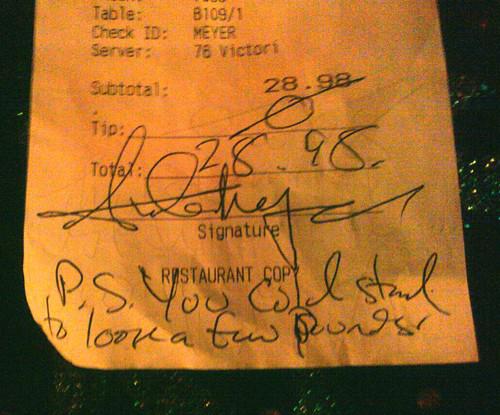 Table: B109/1
Check ID: MEYER
Server: 76 Victori
Subtotal: 28.98
Tip: 0
Total: 28.98.
Signature
RESTAURANT COPY
P.S. You Cold stand
to loose a few Pounds!